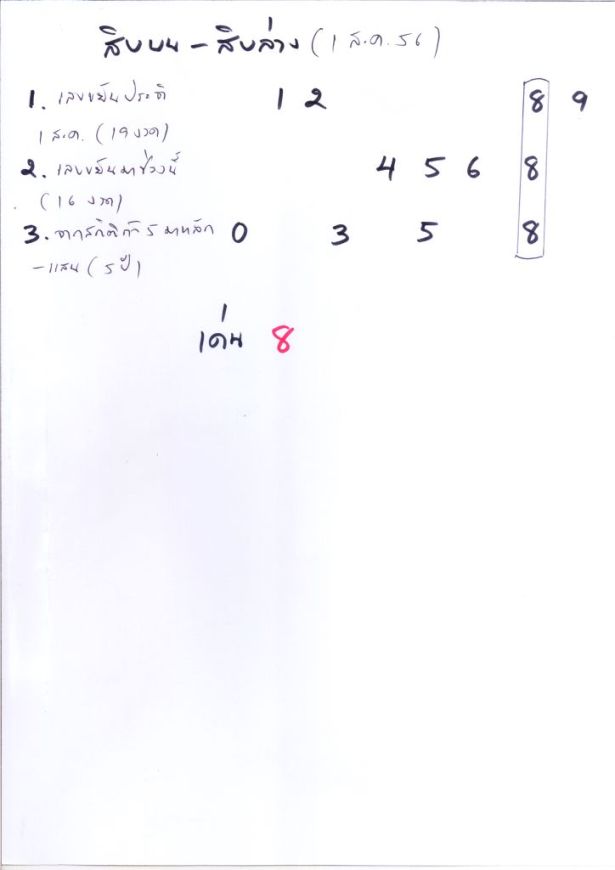 สิบบน - สิบล่าง (1 ส.ค. 56)
1. เลขขยันประจำ 1 2 8 9
1 ส.ค. (19 งวด)
2. เลขขยันมาช่วงนี้ 4 5 6 8
(16 งวด)
3. จากสถิติถ้า 5 มาหลัก 0 3 5 8
-แสน (5 ปี)
เด่น 8